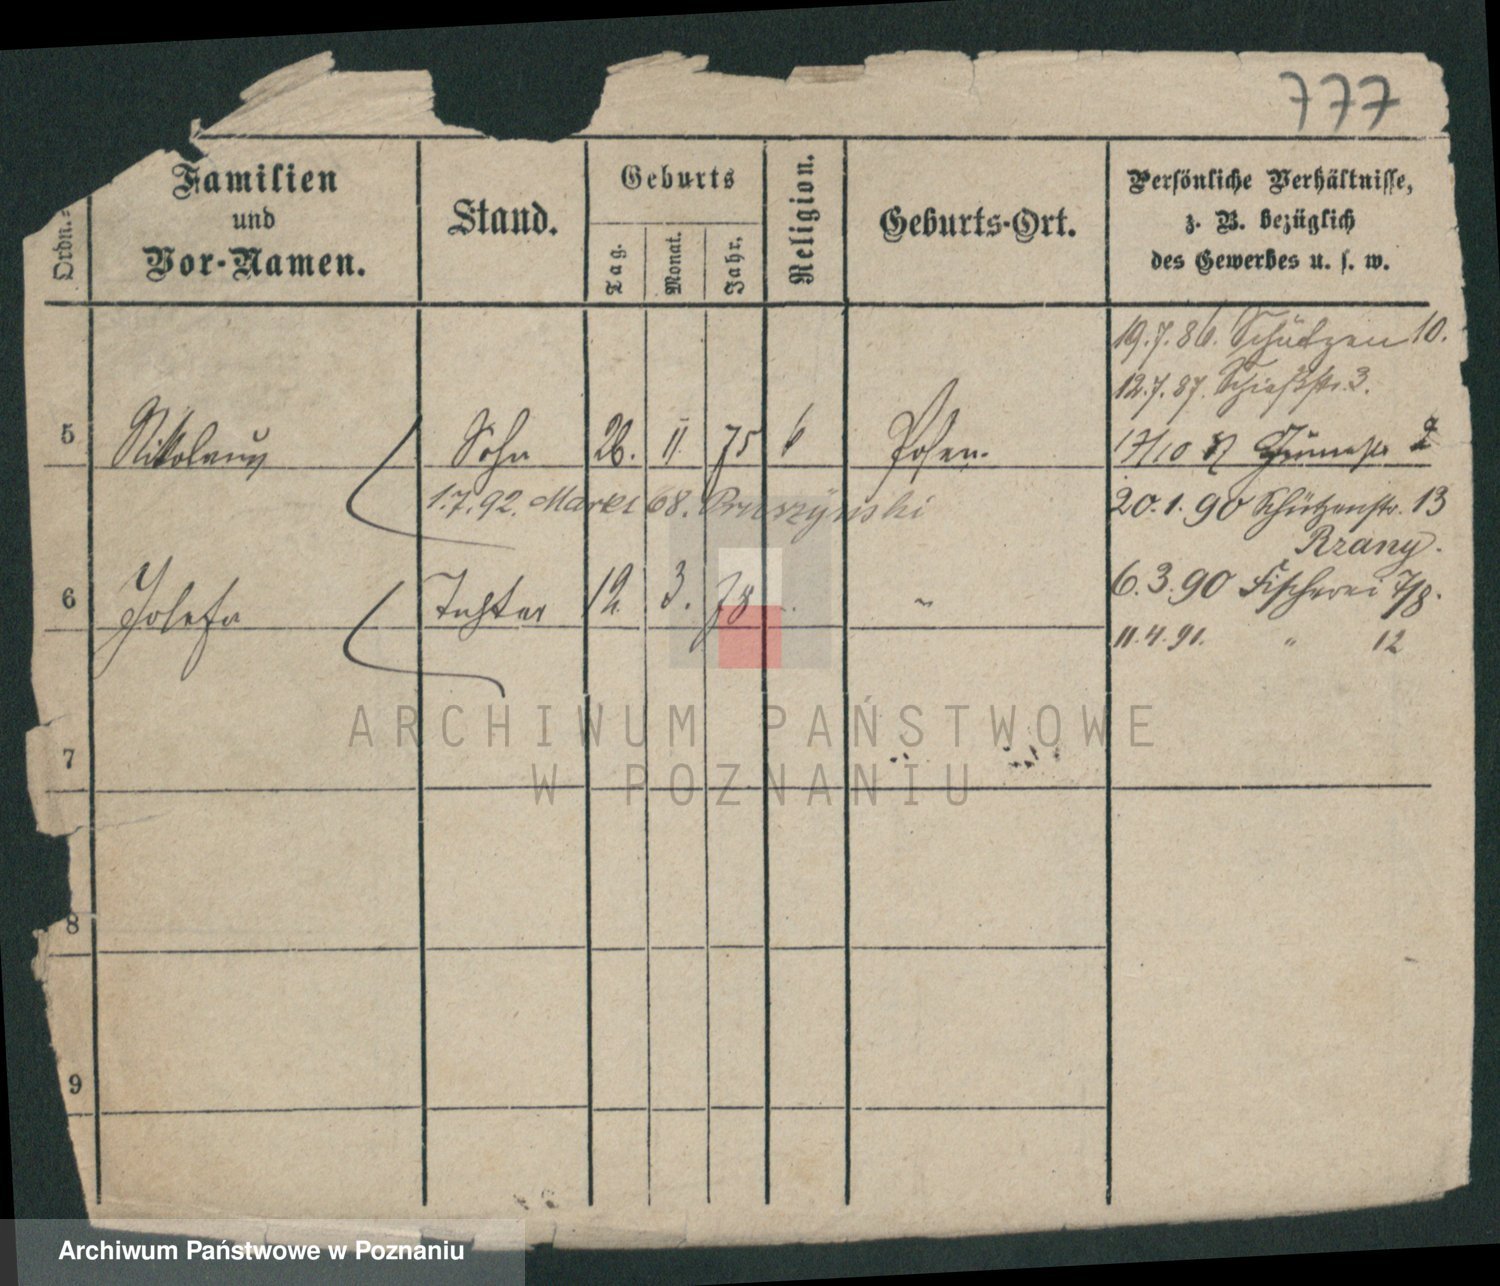 777
Ordn.-
Familien
und
Vor-Namen.
Stand.
Geburts
Tag.
Monat.
Jahr.
Religion.
Geburts-Ort.
Persönliche Verhältnisse,
z. B. bezüglich
des Gewerbes u. s. w.
19.7.86. Schützen 10.
12.7.87. Schießstr. 3.
5 Nikolaus Sohn 26. II 75 k Posen.
17/10 87
1.7.92. Markt 68. Pruszyński
20.1.90 Schützenstr. 13
Rzany.
6 Josefa Tochter 12. 3. 78 "
6.3.90 Fischerei 7/8.
11.4.91. " 12
7
8
9
ARCHIWUM PAŃSTWOWE
W POZNANIU
Archiwum Państwowe w Poznaniu